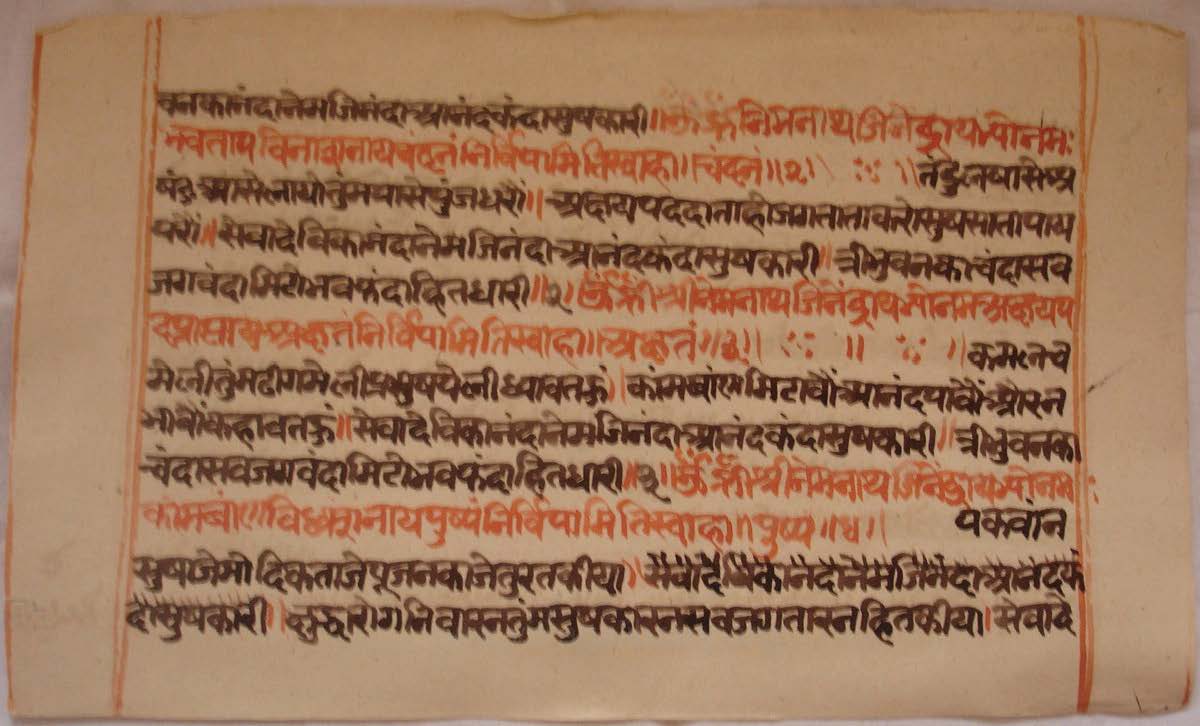 वनकानंदानेमजिनंदाआनंदकंदासुषकारी॥ॐ ह्रीं निमनाथजिनेंद्रायमोनमः
भवतापविनाशनायचंदनंनिर्विपामितिस्वाहा॥चंदनं॥२॥ तंडुलषासेअ
षंडआसेलायोतुमपासेपुंजधरौं॥अक्षयपददाताहोजगत्रातावरोसुषसातापाय
परौं॥सेवादेविकानंदानेमजिनंदाआनंदकंदासुषकारी॥त्रीभुवनकाचंदासव
जगवंदामिटोभवफंदाहितधारी॥३॥ॐ ह्रीं श्रीनेमनाथजिनेंद्रायमोनमअक्षयप
दप्राप्तायअक्षतंनिर्विपामितिस्वाहा॥अक्षतं॥३॥ ॥ ॥कमलच
मेलीतुंमढीगमेलीप्रभुषयेलीध्यावतहुं॥कांमबांणमिटावौंआनंदपावौंओरन
भावौंकहावतहुं॥सेवादेविकानंदानेमजिनंदाआनंदकंदासुषकारी॥त्रीभुवनका
चंदासवजगवंदामिटोभवफंदाहितधारी॥३॥ॐ ह्रीं श्रीनेमनाथजिनेंद्रायमोनम
कांमबांणविध्वसनायपुष्पंनिर्विपामितिस्वाहा॥पुष्प॥४॥ पकवांन
सुषजेमोदिकताजेपूजनकाजेतुरतकीया॥सेवादेविकानंदानेमजिनंदाआनंदकं
दासुषकारी॥क्षुद्धारोगनिवारनतुंमसुषकारनसवजगतारनहितकीया।सेवादे